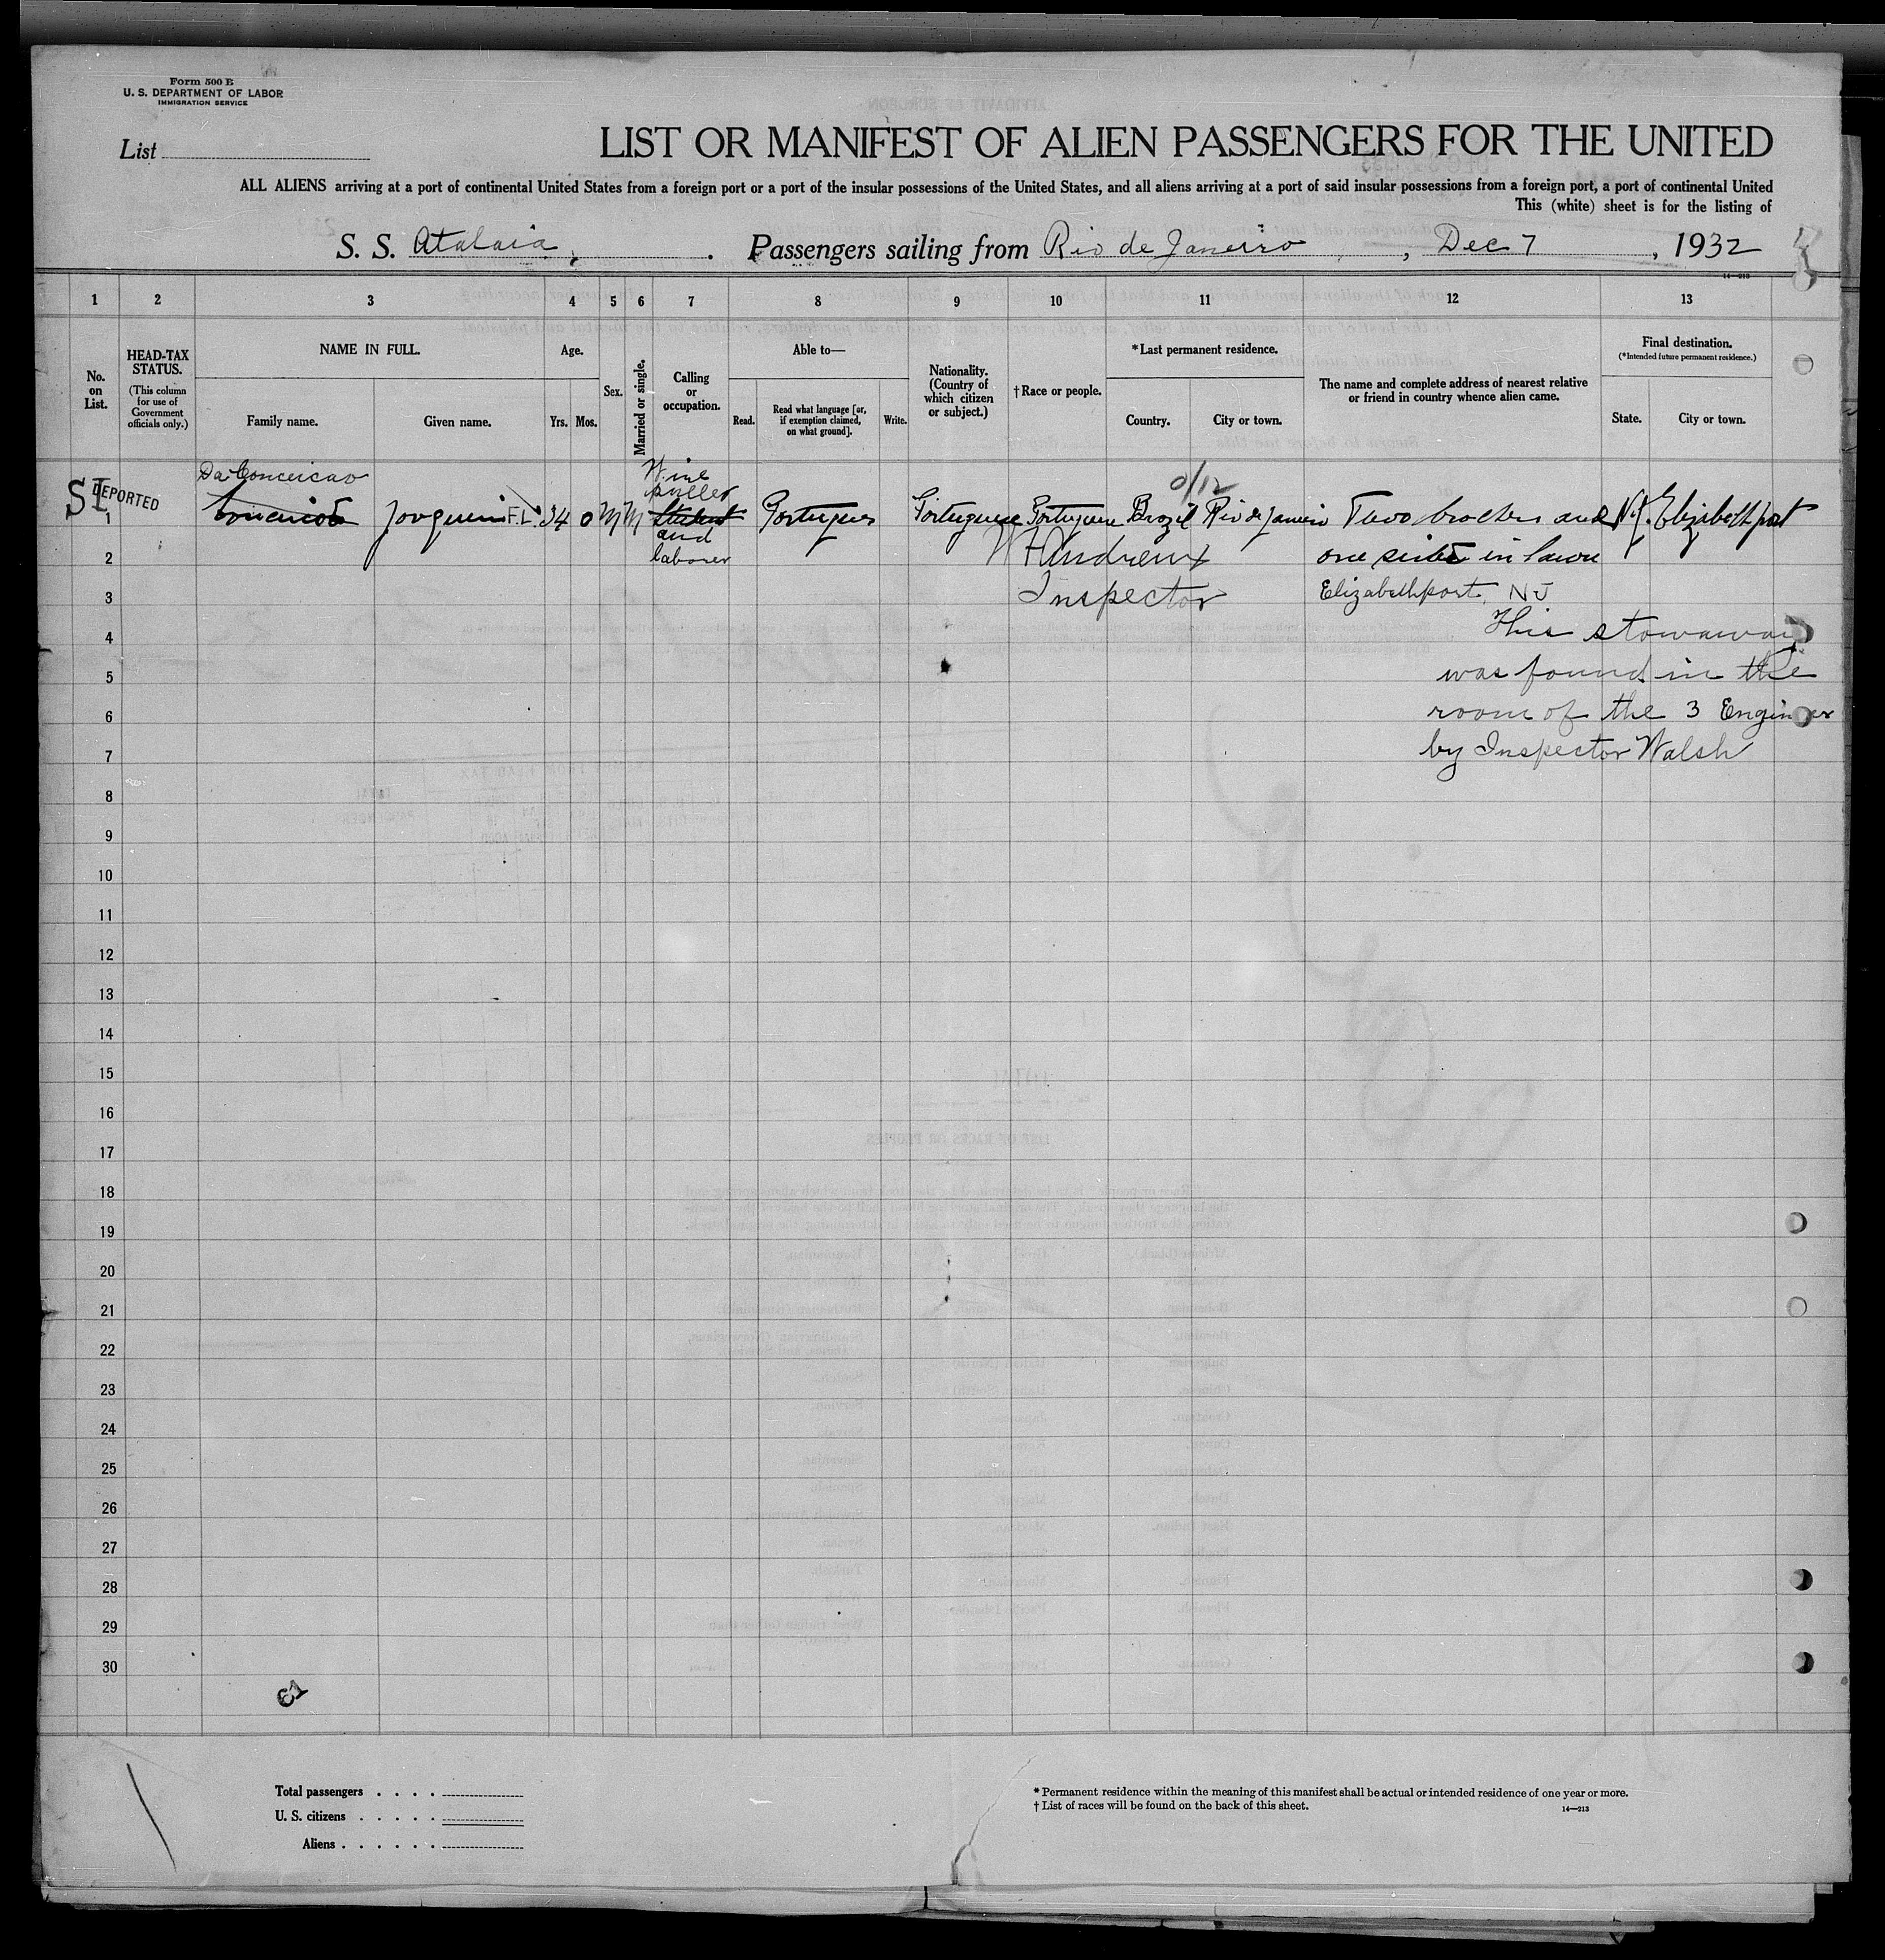 Form 500 B
U. S. DEPARTMENT OF LABOR
IMMIGRATION SERVICE
List
LIST OR MANIFEST OF ALIEN PASSENGERS FOR THE UNITED
ALL ALIENS arriving at a port of continental United States from a foreign port or a port of the insular possessions of the United States, and all aliens arriving at a port of said insular possessions from a foreign port, a port of continental United
This (white) sheet is for the listing of
S. S. Atalaia . Passengers sailing from Rio de Janeiro , Dec 7 , 1932
14—213
1 2 3 4 5 6 7 8 9 10 11 12 13
No. on List.
HEAD-TAX STATUS.
(This column for use of Government officials only.)
NAME IN FULL.
Family name.
Given name.
Age.
Yrs. Mos.
Sex.
Married or single.
Calling or occupation.
Able to—
Read.
Read what language [or, if exemption claimed, on what ground].
Write.
Nationality. (Country of which citizen or subject.)
† Race or people.
*Last permanent residence.
Country.
City or town.
The name and complete address of nearest relative or friend in country whence alien came.
Final destination.
(*Intended future permanent residence.)
State.
City or town.
Da Conceicao
Wine
puller
0/12
SI DEPORTED
1 Joaquin F.L. 34 0 M M Student Portugues Portuguese Portuguese Brazil Rio de Janeiro Two brothers and N.J. Elizabethport
and
laborer
2 W H Andrews one sister in lawe
3 Inspector Elizabethport, NJ
4 This stowaway
5 was found in the
6 room of the 3 Engineer
7 by Inspector Walsh
8
9
10
11
12
13
14
15
16
17
18
19
20
21
22
23
24
25
26
27
28
29
30
Total passengers
U. S. citizens
Aliens
* Permanent residence within the meaning of this manifest shall be actual or intended residence of one year or more.
† List of races will be found on the back of this sheet.
14—213